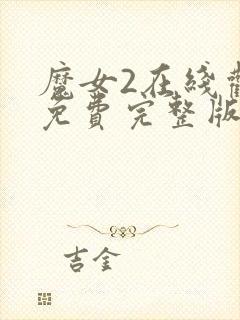 魔女2在线
免费完整版
吉金